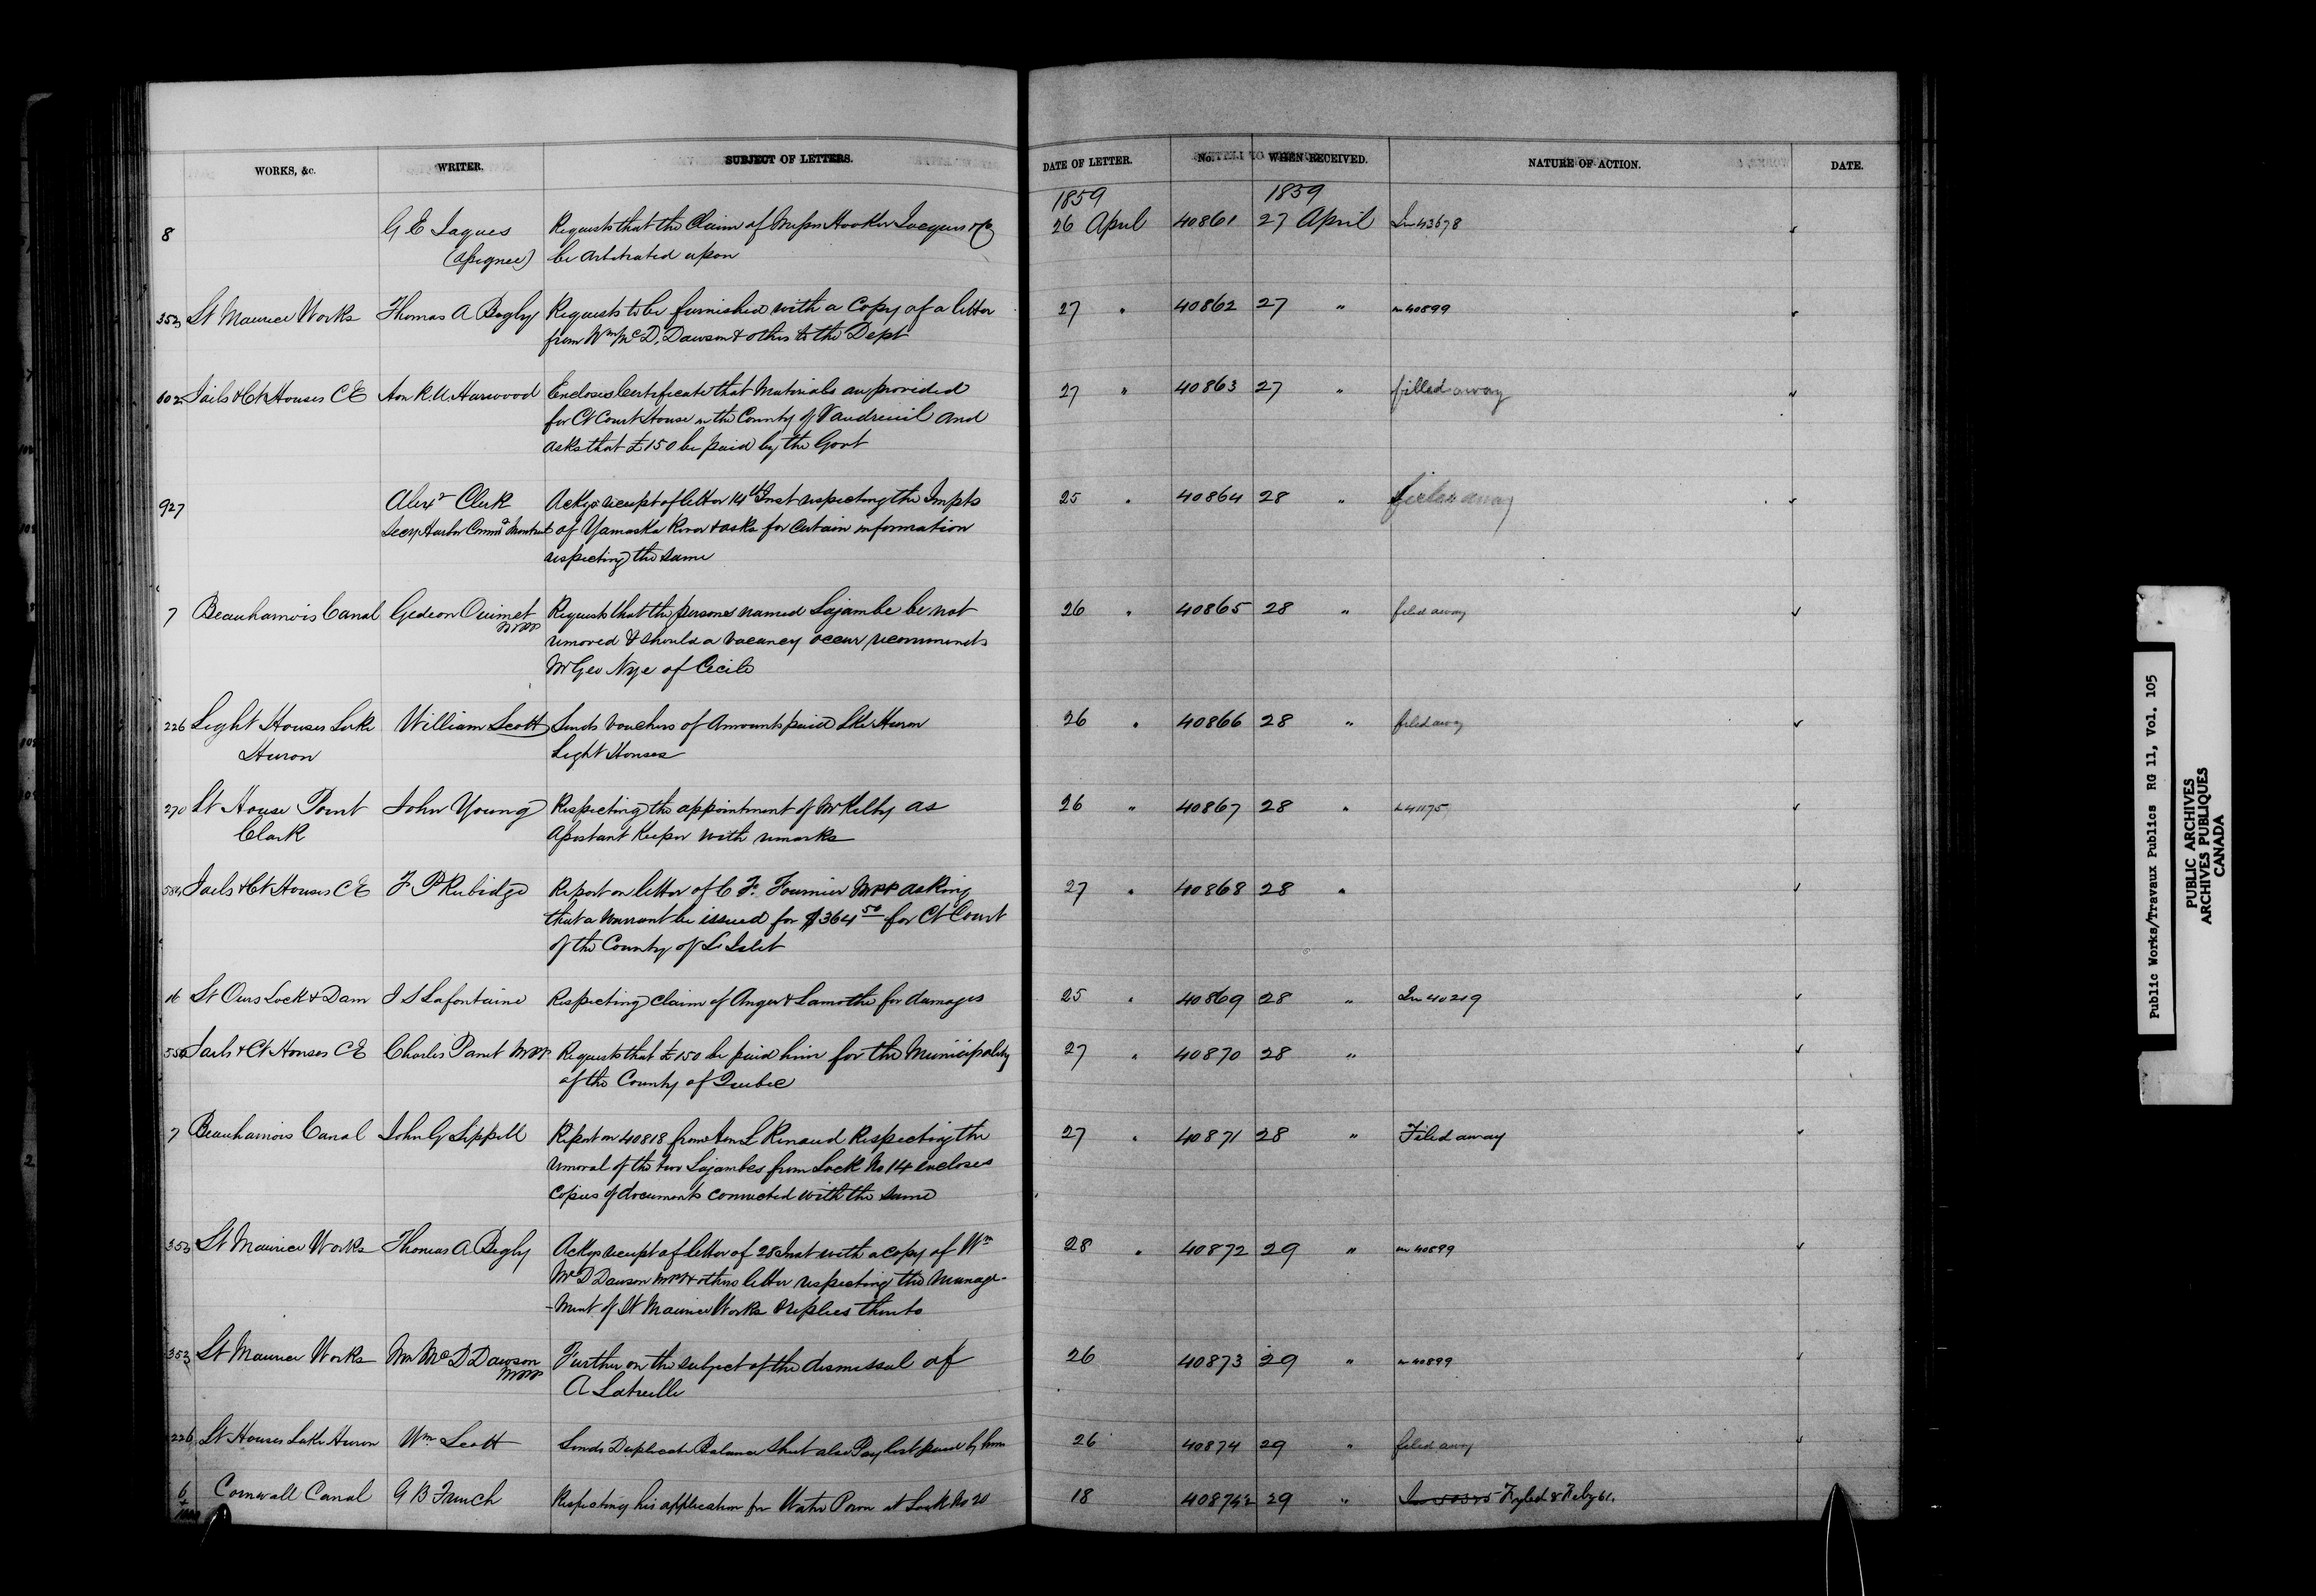 WORKS, &c. WRITER. SUBJECT OF LETTERS. DATE OF LETTER. No. WHEN RECEIVED. NATURE OF ACTION. DATE.
1859 1859
8 G E Jaques Requests that the Claim of Messrs Hooker Jacques & Co 26 April 40861 27 April In 43678
(Assignee) be arbitrated upon
353 St Maurice Works Thomas A Begly Requests to be furnished with a Copy of a letter 27 " 40862 27 " in 40899
from Wm McD. Dawson & others to the Dept
602 Jails & Ct Houses C E Hon R. U. Harwood Encloses Certificate that Materials are provided 27 " 40863 27 " filled away
for Ct Court House in the County of Vaudreuil and
asks that £150 be paid by the Govt
927 Alexr Clerk Ackgs receipt of letter 14th Inst respecting the Impts 25 " 40864 28 "
Secy Harbor Commrs Montreal of Yamaska River & asks for certain information
respecting the same
7 Beauharnois Canal Gedeon Ouimet Requests that the persons named Lajambe be not 26 " 40865 28 " filed away
MPP removed & should a vacancy occur recommends
Mr Geo Nye of Cecile
226 Light Houses Lake William Scott Sends vouchers of Amounts paid Lke Huron 26 " 40866 28 " filed away
Huron Light Houses
270 Lt House Point John Young Respecting the appointment of Mr Kelly as 26 " 40867 28 " 41175
Clark Assistant Keeper with remarks
584 Jails & Ct Houses C E F P Rubidge Report on letter of C F. Fournier MPP asking 27 " 40868 28 "
that a warrant be issued for $364 50 for Ct Court
of the County of L Islet
16 St Ours Lock & Dam J S Lafontaine Respecting claim of Anger & Lamothe for damages 25 " 40869 28 " In 40219
Jails & Ct Houses C E Charles Panet MPP Requests that £150 be paid him for the Municipality 27 " 40870 28 "
of the County of Quebec
7 Beauharnois Canal John G Sippell Report on 40818 from Hon L Renaud Respecting the 27 " 40871 28 " Filed away
removal of the two Lajambes from Lock No 14 encloses
Copies of documents connected with the same
353 St Maurice Works Thomas A Begly Ackgs receipt of letter of 28 Inst with a copy of Wm 28 " 40872 29 " in 40899
McD Dawson MPP & others letter respecting the manage-
-ment of St Maurice Works & replies thereto
353 St Maurice Works Wm McD Dawson Further on the subject of the dismissal of 26 40873 29 " in 40899
MPP A Latreille
226 Lt Houses Lake Huron Wm Scott Sends Duplicate Balance Sheet also Pay list paid by him 26 40874 29 " filed away
6 Cornwall Canal G B French Respecting his application for Water Power at Lock No 20 18 40874½ 29 " Fyled 8 Feby 61.
Public Works/Travaux Publics RG 11, Vol. 105
PUBLIC ARCHIVES
ARCHIVES PUBLIQUES
CANADA